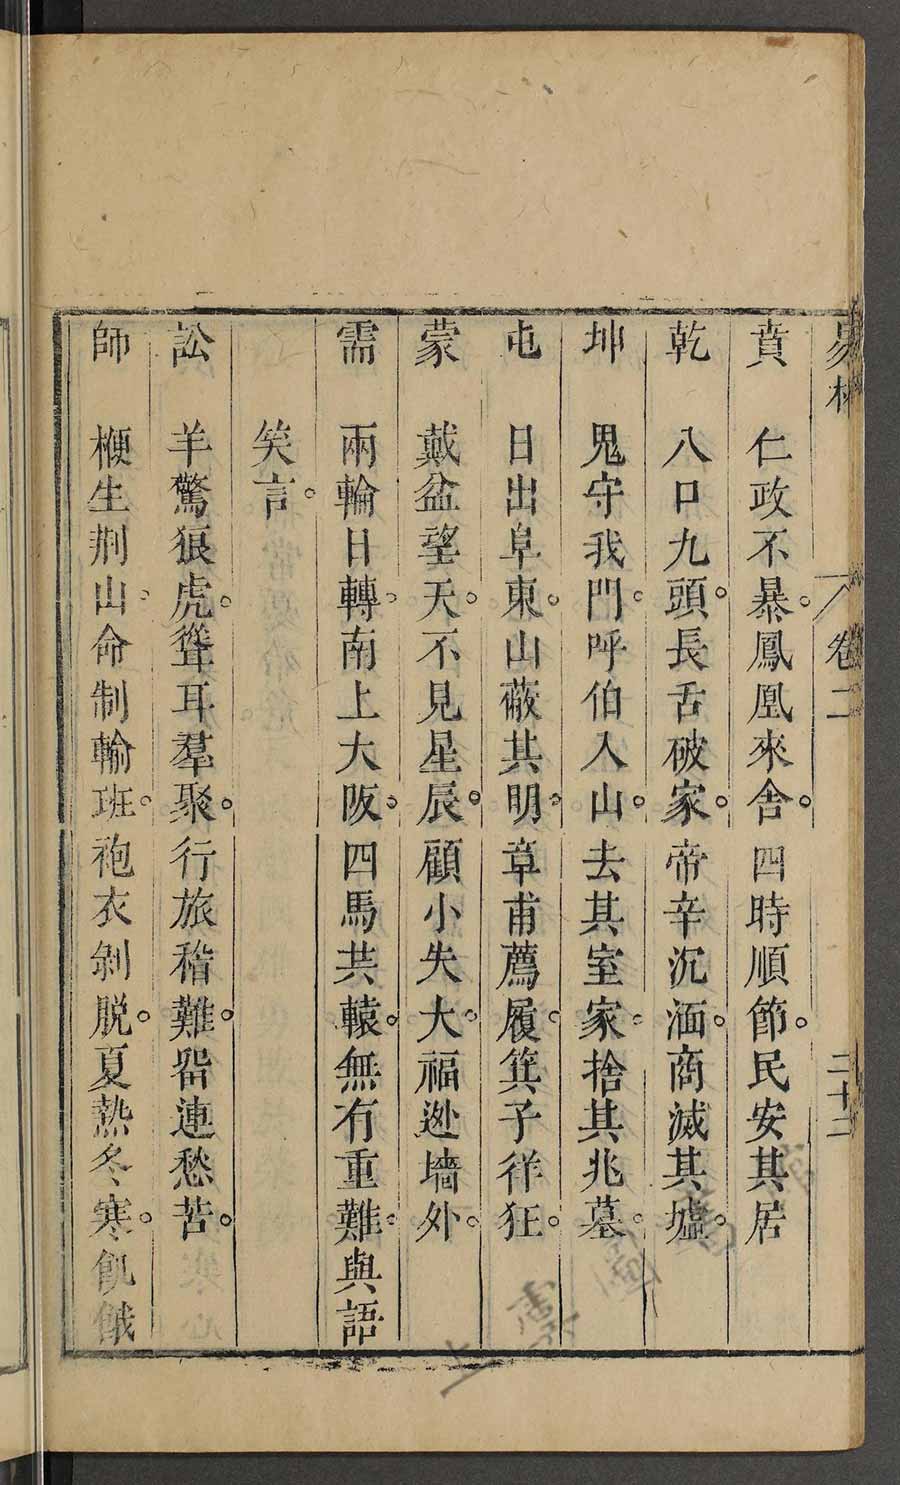 易林 卷二 二十二
賁 仁政不暴。鳳凰來舍。四時順節。民安其居
乾 八口九頭。長舌破家。帝辛沉湎。商滅其墟。
坤 鬼守我門。呼伯入山。去其室家。捨其兆墓。
屯 日出阜東。山蔽其明。章甫薦履。箕子徉狂。
蒙 戴盆望天。不見星辰。顧小失大。福逊墻外。
需 兩輪日轉。南上大阪。四馬共轅。無有重難。與語
笑言。
訟 羊驚狼虎。聳耳羣聚。行旅稽難。畱連愁苦。
師 楩生荆山。命制輸班。袍衣剝脱。夏熱冬寒。飢餓